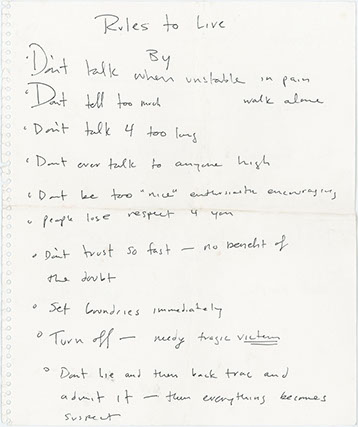 Rules to Live
By
• Don't talk when unstable in pain
• Don't tell too much walk alone
• Don't talk 4 too long
• Dont ever talk to anyone high
• Dont be too "nice" enthusiastic encouraging
• people lose respect 4 you
• Don't trust so fast — no benefit of
the doubt
• Set boundries immediately
• Turn off — needy tragic victim
• Dont lie and then back trac and
admit it — then everything becomes
suspect